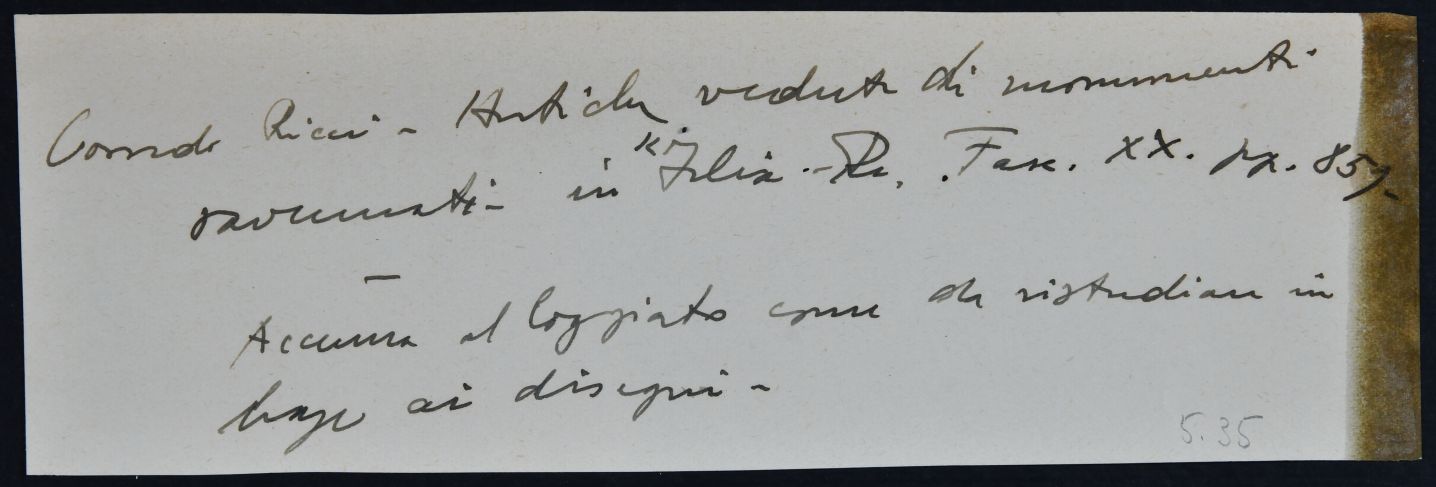 Corrado Ricci - Antiche vedute di monumenti
ravennati - in "Felix - Ra. Fasc. XX. pp. 857-
—
Accenna al loggiato come da ristudiare in
base ai disegni -
5.35